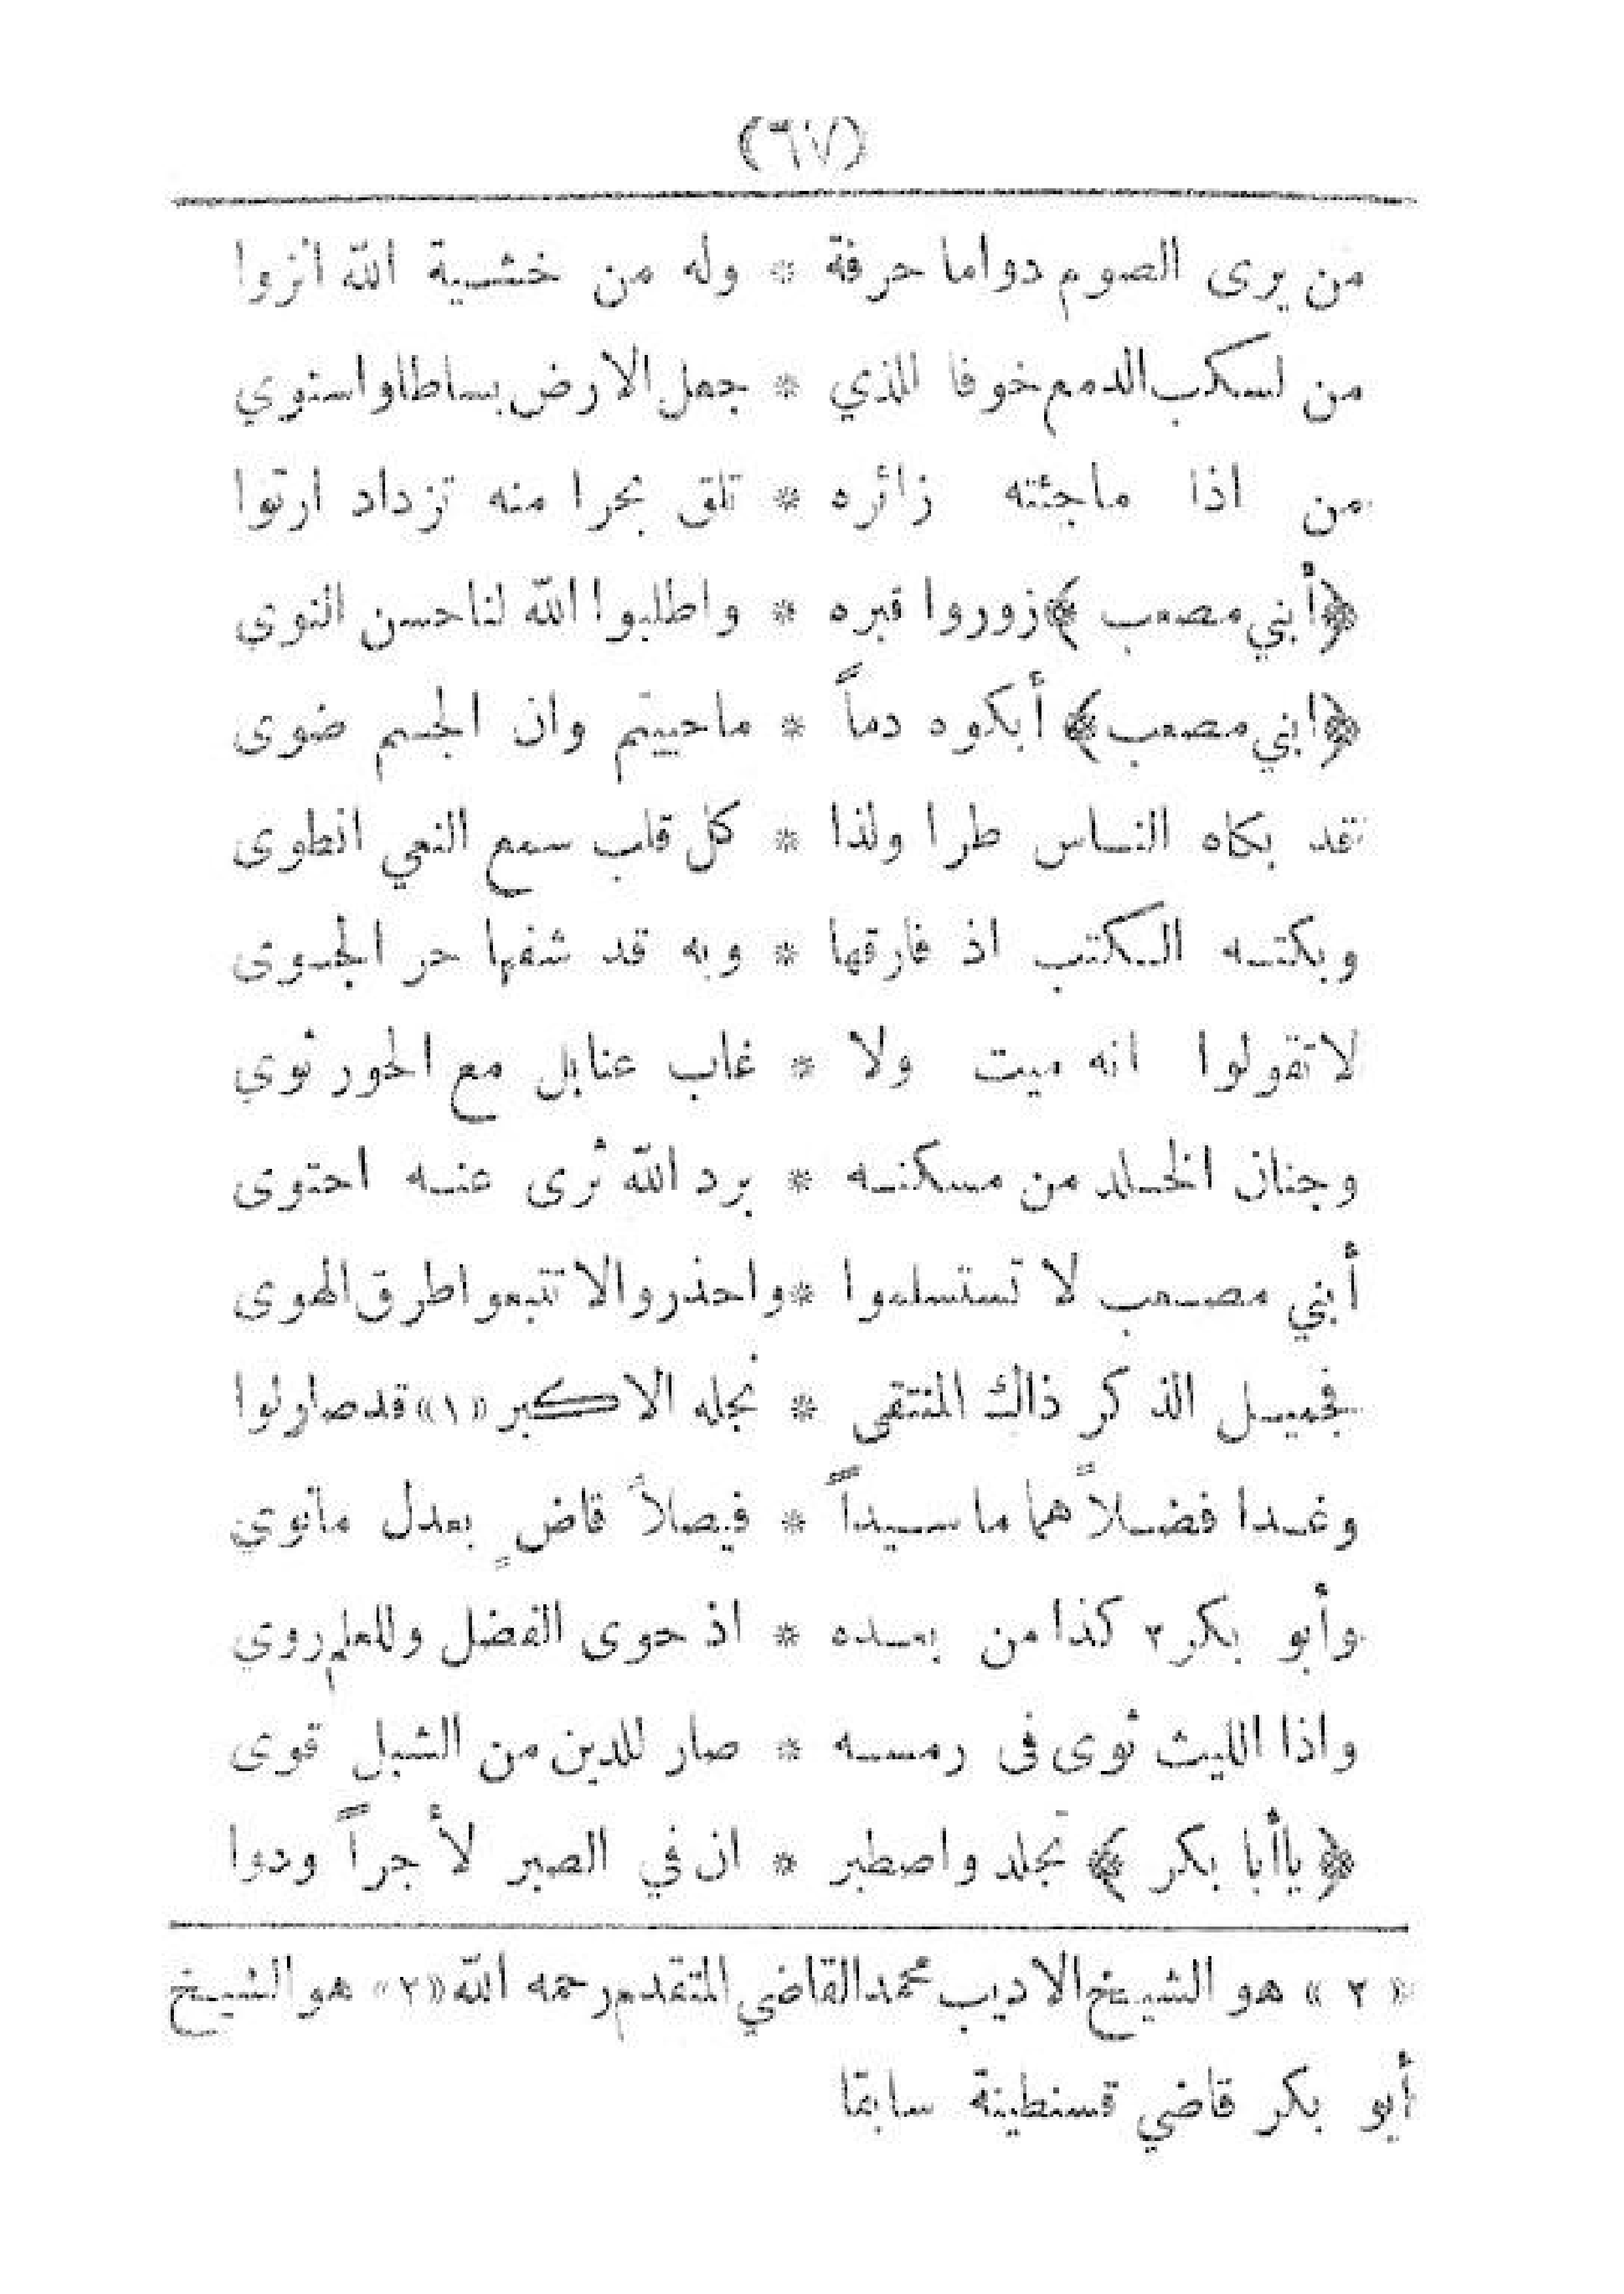 (٦٧)
من يرى الصوم دواما حرفة * وله من خشية الله انزوا
من لسكب الدمع خوفا للذي * جعل الارض بساطا واستوي
من اذا ماجئته زائره * تلق بحرا منه تزداد ارتوا
﴿أبني مصعب﴾ زوروا قبره * واطلبوا الله لنا حسن النوي
﴿ابني مصعب﴾ أبكوه دماً * ماحييتم وان الجسم ضوى
فقد بكاه الناس طرا ولذا * كل قلب سمع النعي انطوى
وبكتـه الـكتب اذ فارقها * وبه قد شفها حر الجوى
لا تقولوا انه ميت ولا * غاب عنا بل مع الحور ثوي
وجنان الخلد من مسكنـه * برد الله ثرى عنـه احتوى
أبني مصعب لا تستسلموا * واحذروا لا تتبعوا طرق الهوى
فجميل الذكر ذاك المنتقى * نجله الاكبر «١» قد صار لوا
وغدا فضلاً هماما سيداً * فيصلاً قاضٍ بعدل مانوي
وأبو بكر ٢ كذا من بعده * اذ حوى الفضل وللعلم روي
واذا الليث ثوى فى رمسه * صار للدين من الشبل قوى
﴿ياأبا بكر﴾ تجلد واصطبر * ان في الصبر لأجراً ودوا
«٢» هو الشيخ الاديب محمد القاضي المتقدم رحمه الله «٢» هو الشيخ
أبو بكر قاضي قسنطينة سابقا